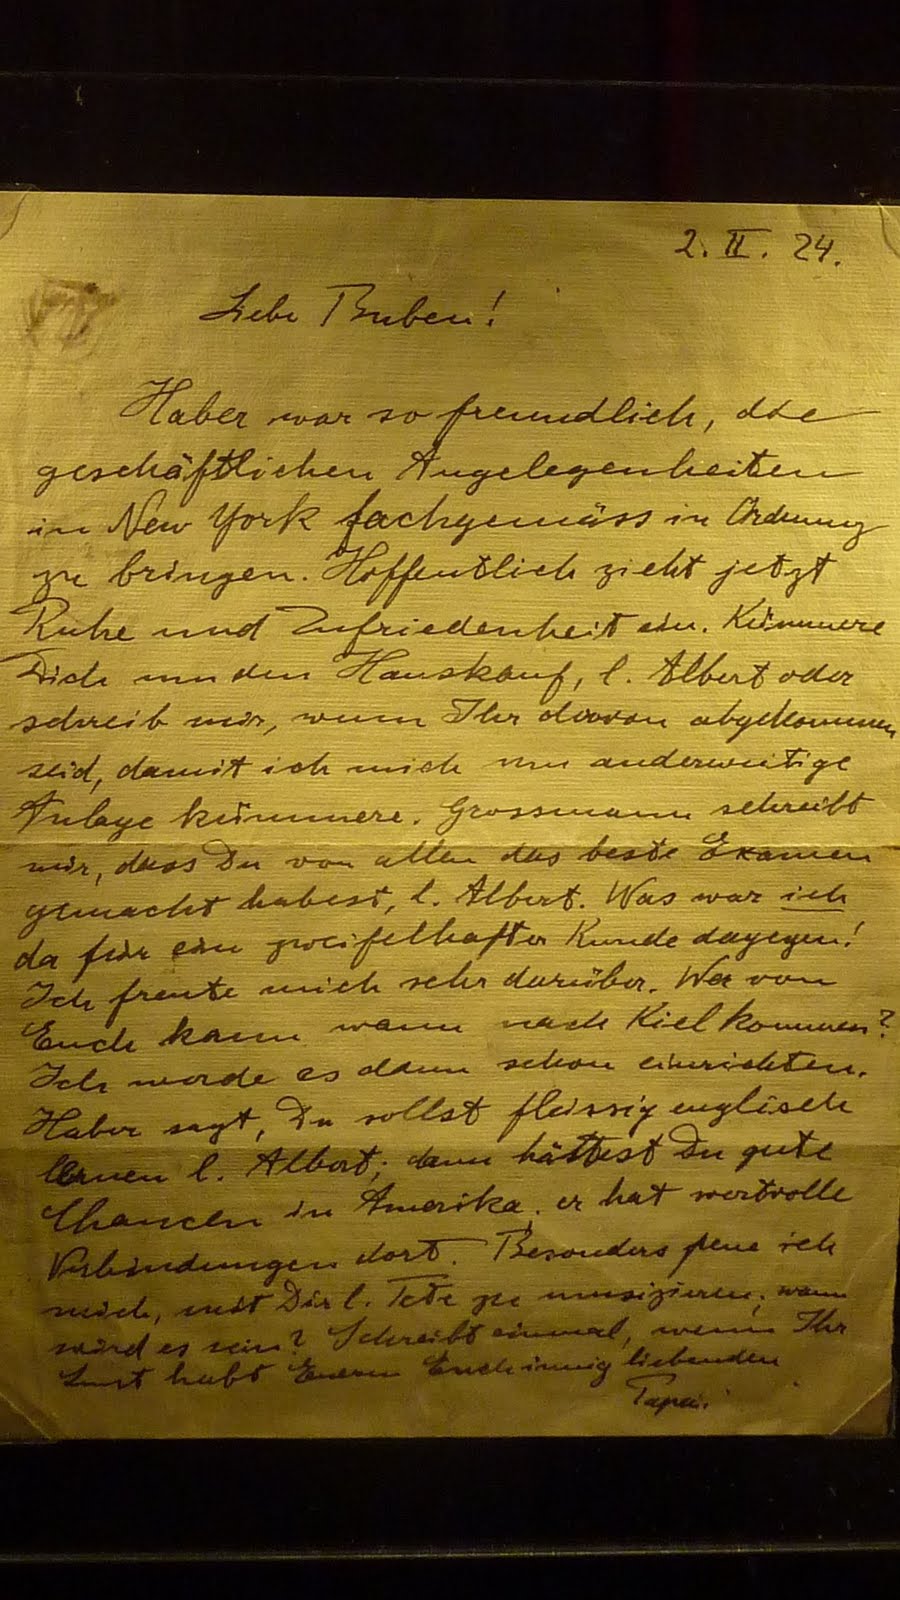 2. II. 24.
Liebe Buben!
Haber war so freundlich, die
geschäftlichen Angelegenheiten
in New York fachgemäss in Ordnung
zu bringen. Hoffentlich zieht jetzt
Ruhe und Zufriedenheit ein. Kümmere
Dich um den Hauskauf, l. Albert oder
schreib mir, wenn Ihr davon abgekommen
seid, damit ich mich um anderweitige
Anlage kümmere. Grossmann schreibt
mir, dass Du von allen das beste Examen
gemacht habest, l. Albert. Was war ich
da für ein zweifelhafter Kunde dagegen!
Ich freute mich sehr darüber. Wer von
Euch kann wann nach Kiel kommen?
Ich werde es dann schon einrichten.
Haber sagt, Du sollst fleissig englisch
lernen l. Albert; dann hättest Du gute
Chancen in Amerika. er hat wertvolle
Verbindungen dort. Besonders freue ich
mich, mit Dir l. Tete zu musizieren; wann
wird es sein? Schreibt einmal, wenn Ihr
Lust habt Euerm Euch innig liebenden
Papa.